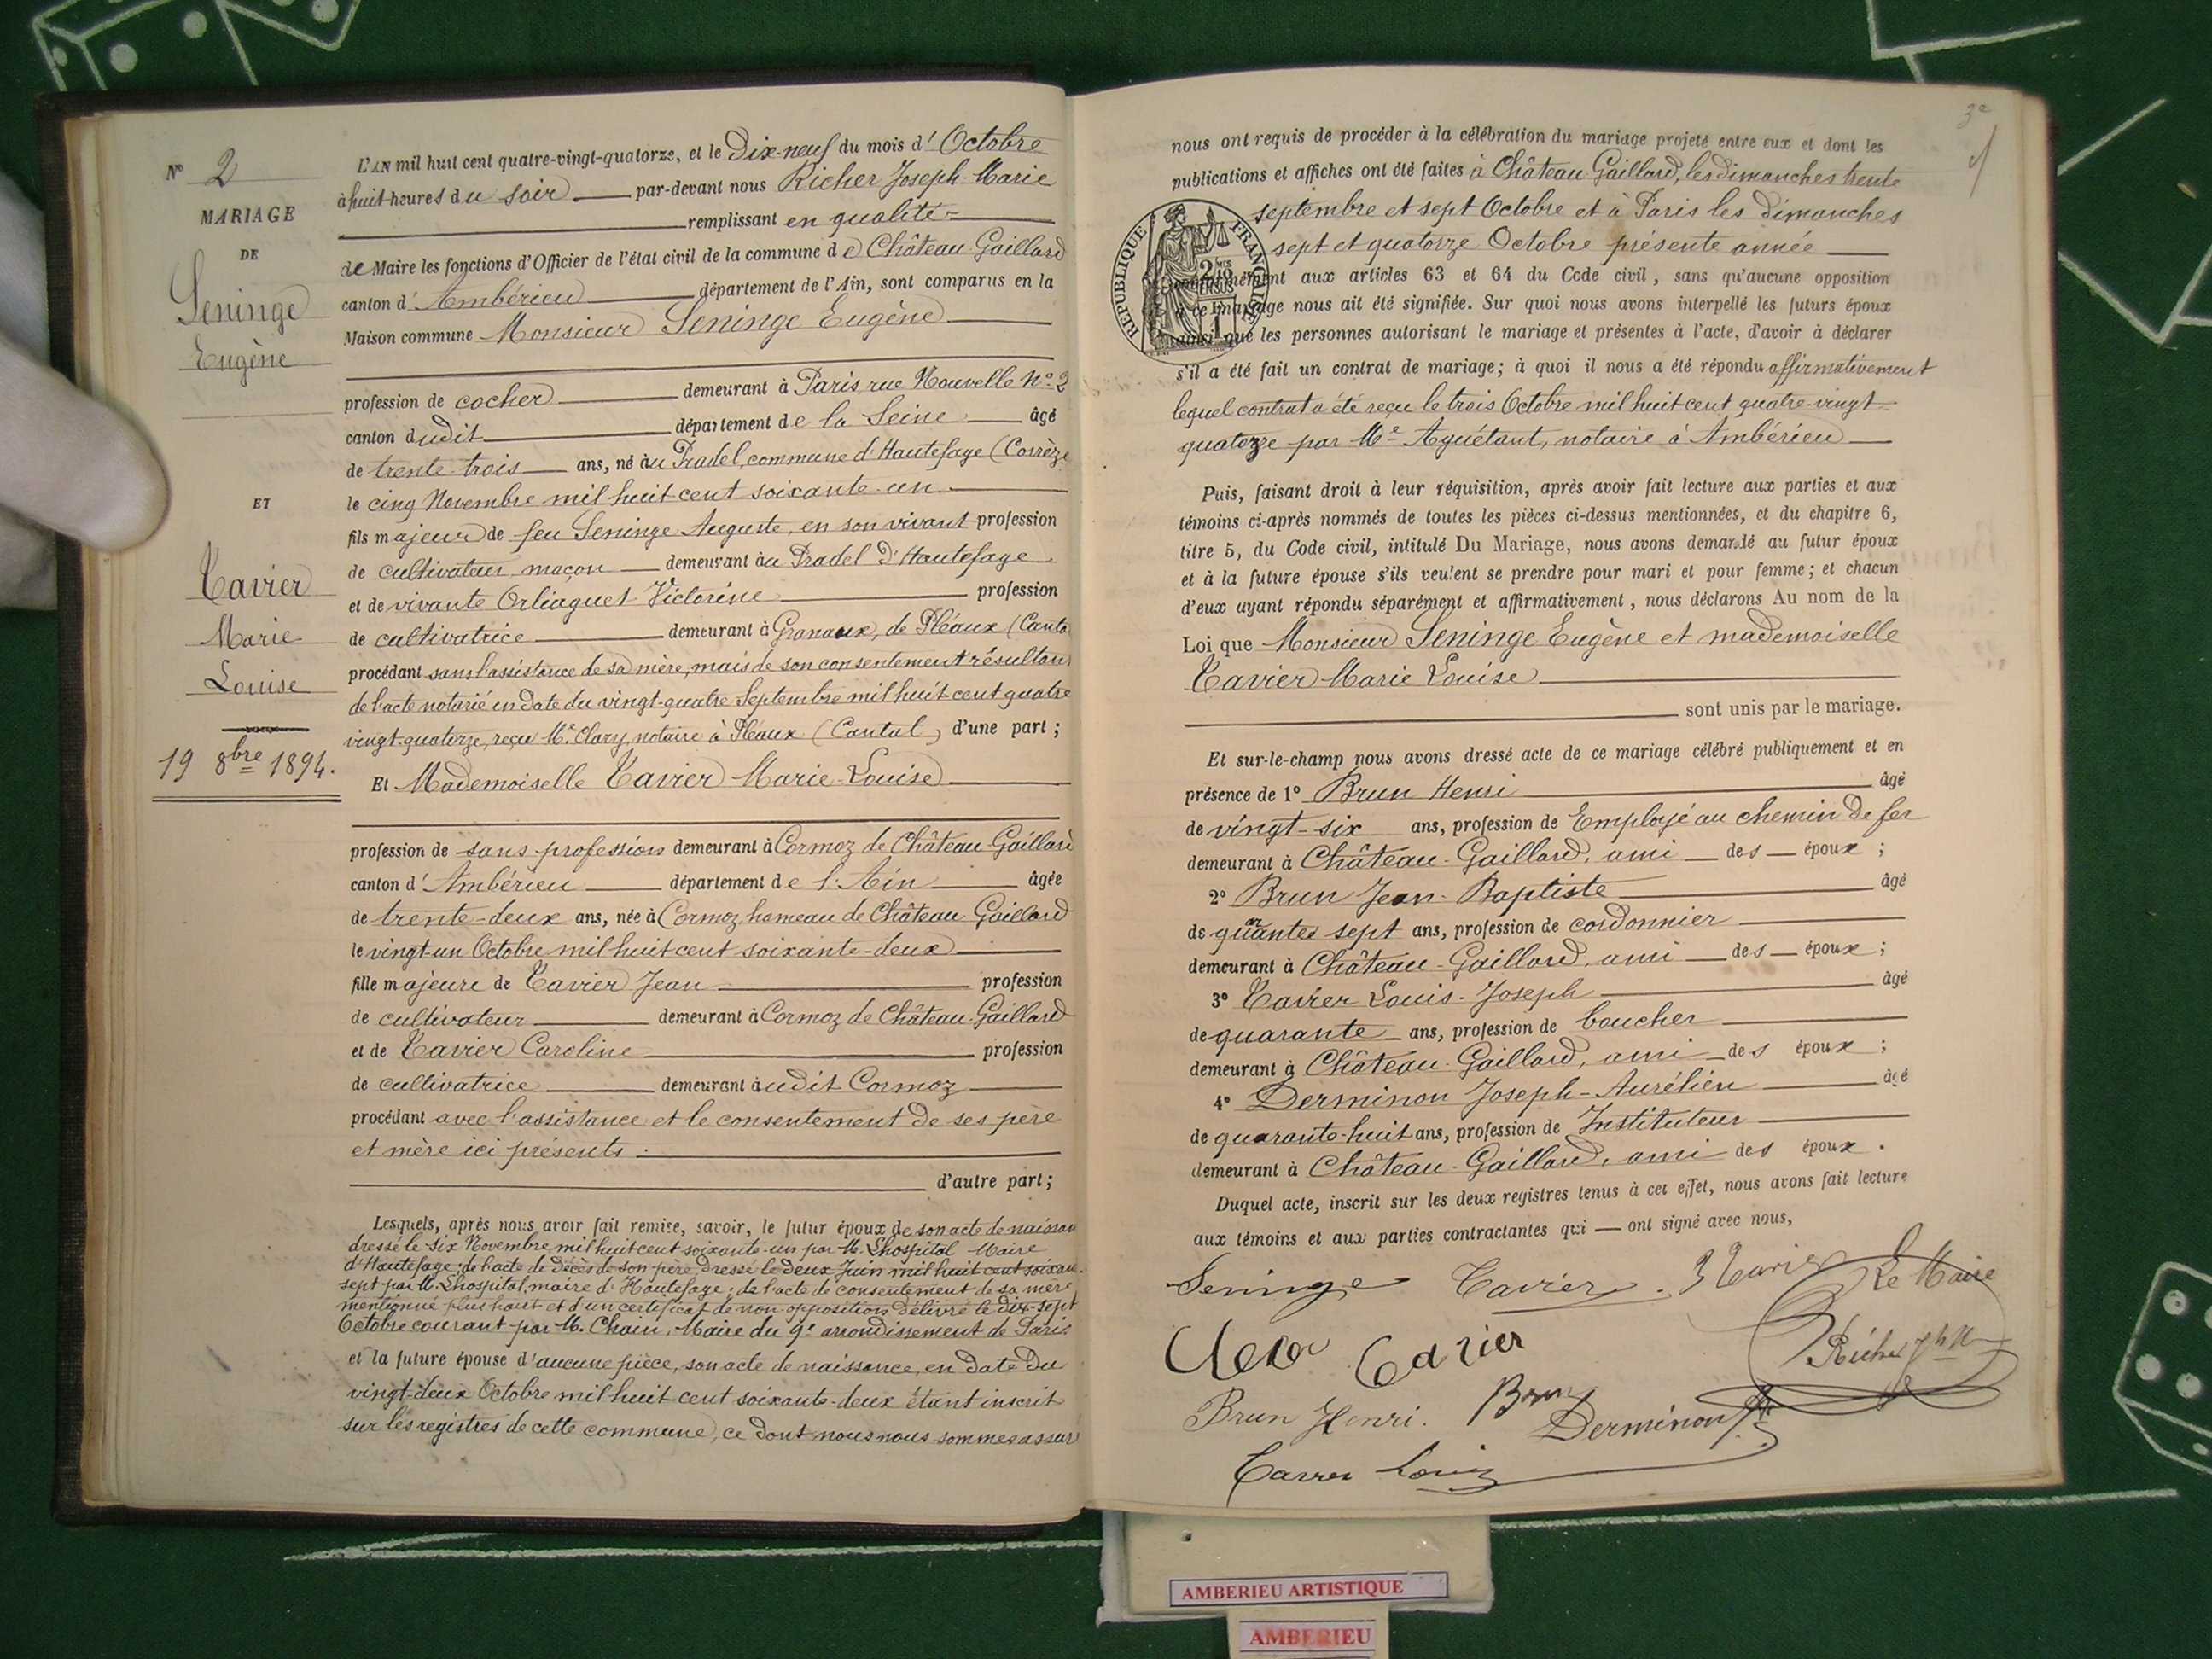 N° 2
MARIAGE
DE
Seninge
Eugène
ET
Tavier
Marie
Louise
19 8bre 1894.
L'AN mil huit cent quatre-vingt-quatorze, et le Dix-neuf du mois d'Octobre
à huit heures du soir par-devant nous Richer Joseph-Marie
remplissant en qualité
de Maire les fonctions d'Officier de l'état civil de la commune de Château-Gaillard
canton d'Ambérieu département de l'Ain, sont comparus en la
Maison commune Monsieur Seninge Eugène
profession de cocher demeurant à Paris, rue Nouvelle N° 2
canton dudit département de la Seine âgé
de trente-trois ans, né au Pradel, commune d'Hautefage (Corrèze
le cinq Novembre mil huit cent soixante-un
fils majeur de feu Seninge Auguste, en son vivant profession
de cultivateur maçon demeurant au Pradel d'Hautefage
et de vivante Orliaguet Victorine profession
de cultivatrice demeurant à Granoux, de Pléaux (Canta
procédant sans l'assistance de sa mère, mais de son consentement résultant
de l'acte notarié en date du vingt-quatre Septembre mil huit cent quatre
vingt-quatorze, reçu Me Clary, notaire à Pléaux (Cantal, d'une part;
Et Mademoiselle Tavier Marie-Louise
profession de sans profession demeurant à Cormoz de Château-Gaillard
canton d'Ambérieu département de l'Ain âgée
de trente-deux ans, née à Cormoz, hameau de Château-Gaillard
le vingt-un Octobre mil huit cent soixante-deux
fille majeure de Tavier Jean profession
de cultivateur demeurant à Cormoz de Château-Gaillard
et de Tavier Caroline profession
de cultivatrice demeurant audit Cormoz
procédant avec l'assistance et le consentement de ses père
et mère ici présents.
d'autre part;
Lesquels, après nous avoir fait remise, savoir, le futur époux de son acte de naissan
dressé le six Novembre mil huit cent soixante-un par M. Lhospital Maire
d'Hautefage; de l'acte de décès de son père dressé le deux Juin mil huit cent soixan
sept par M. Lhospital, maire d'Hautefage; de l'acte de consentement de sa mère
mentionné plus haut et d'un certificat de non opposition délivré le dix-sept
Octobre courant par M. Chain, Maire du 9e arrondissement de Paris
et la future épouse d'aucune pièce, son acte de naissance, en date du
vingt-deux Octobre mil huit cent soixante-deux étant inscrit
sur les registres de cette commune, ce dont nous nous sommes assur
3e
nous ont requis de procéder à la célébration du mariage projeté entre eux et dont les
publications et affiches ont été faites à Château-Gaillard, les dimanches trente
septembre et sept Octobre et à Paris les dimanches
sept et quatorze Octobre présente année
RÉPUBLIQUE FRANÇAISE
conformément aux articles 63 et 64 du Code civil, sans qu'aucune opposition
à ce mariage nous ait été signifiée. Sur quoi nous avons interpellé les futurs époux
ainsi que les personnes autorisant le mariage et présentes à l'acte, d'avoir à déclarer
s'il a été fait un contrat de mariage; à quoi il nous a été répondu affirmativement
lequel contrat a été reçu le trois Octobre mil huit cent quatre-vingt
quatorze par Me Aguétant, notaire à Ambérieu
Puis, faisant droit à leur réquisition, après avoir fait lecture aux parties et aux
témoins ci-après nommés de toutes les pièces ci-dessus mentionnées, et du chapitre 6,
titre 5, du Code civil, intitulé Du Mariage, nous avons demandé au futur époux
et à la future épouse s'ils veulent se prendre pour mari et pour femme; et chacun
d'eux ayant répondu séparément et affirmativement, nous déclarons Au nom de la
Loi que Monsieur Seninge Eugène et mademoiselle
Tavier Marie Louise
sont unis par le mariage.
Et sur-le-champ nous avons dressé acte de ce mariage célébré publiquement et en
présence de 1° Brun Henri âgé
de vingt-six ans, profession de Employé au chemin de fer
demeurant à Château-Gaillard, ami des époux;
2° Brun Jean-Baptiste âgé
de sept ans, profession de cordonnier
demeurant à Château-Gaillard, ami des époux;
3° Tavier Louis-Joseph âgé
de quarante ans, profession de boucher
demeurant à Château-Gaillard, ami des époux;
4° Derminon Joseph-Aurélien âgé
de quarante-huit ans, profession de Instituteur
demeurant à Château-Gaillard, ami des époux.
Duquel acte, inscrit sur les deux registres tenus à cet effet, nous avons fait lecture
aux témoins et aux parties contractantes qui ont signé avec nous,
Seninge Tavier Le Maire
Tavier
Brun Henri. Brun Derminon
Tavier Louis
AMBERIEU ARTISTIQUE
AMBERIEU